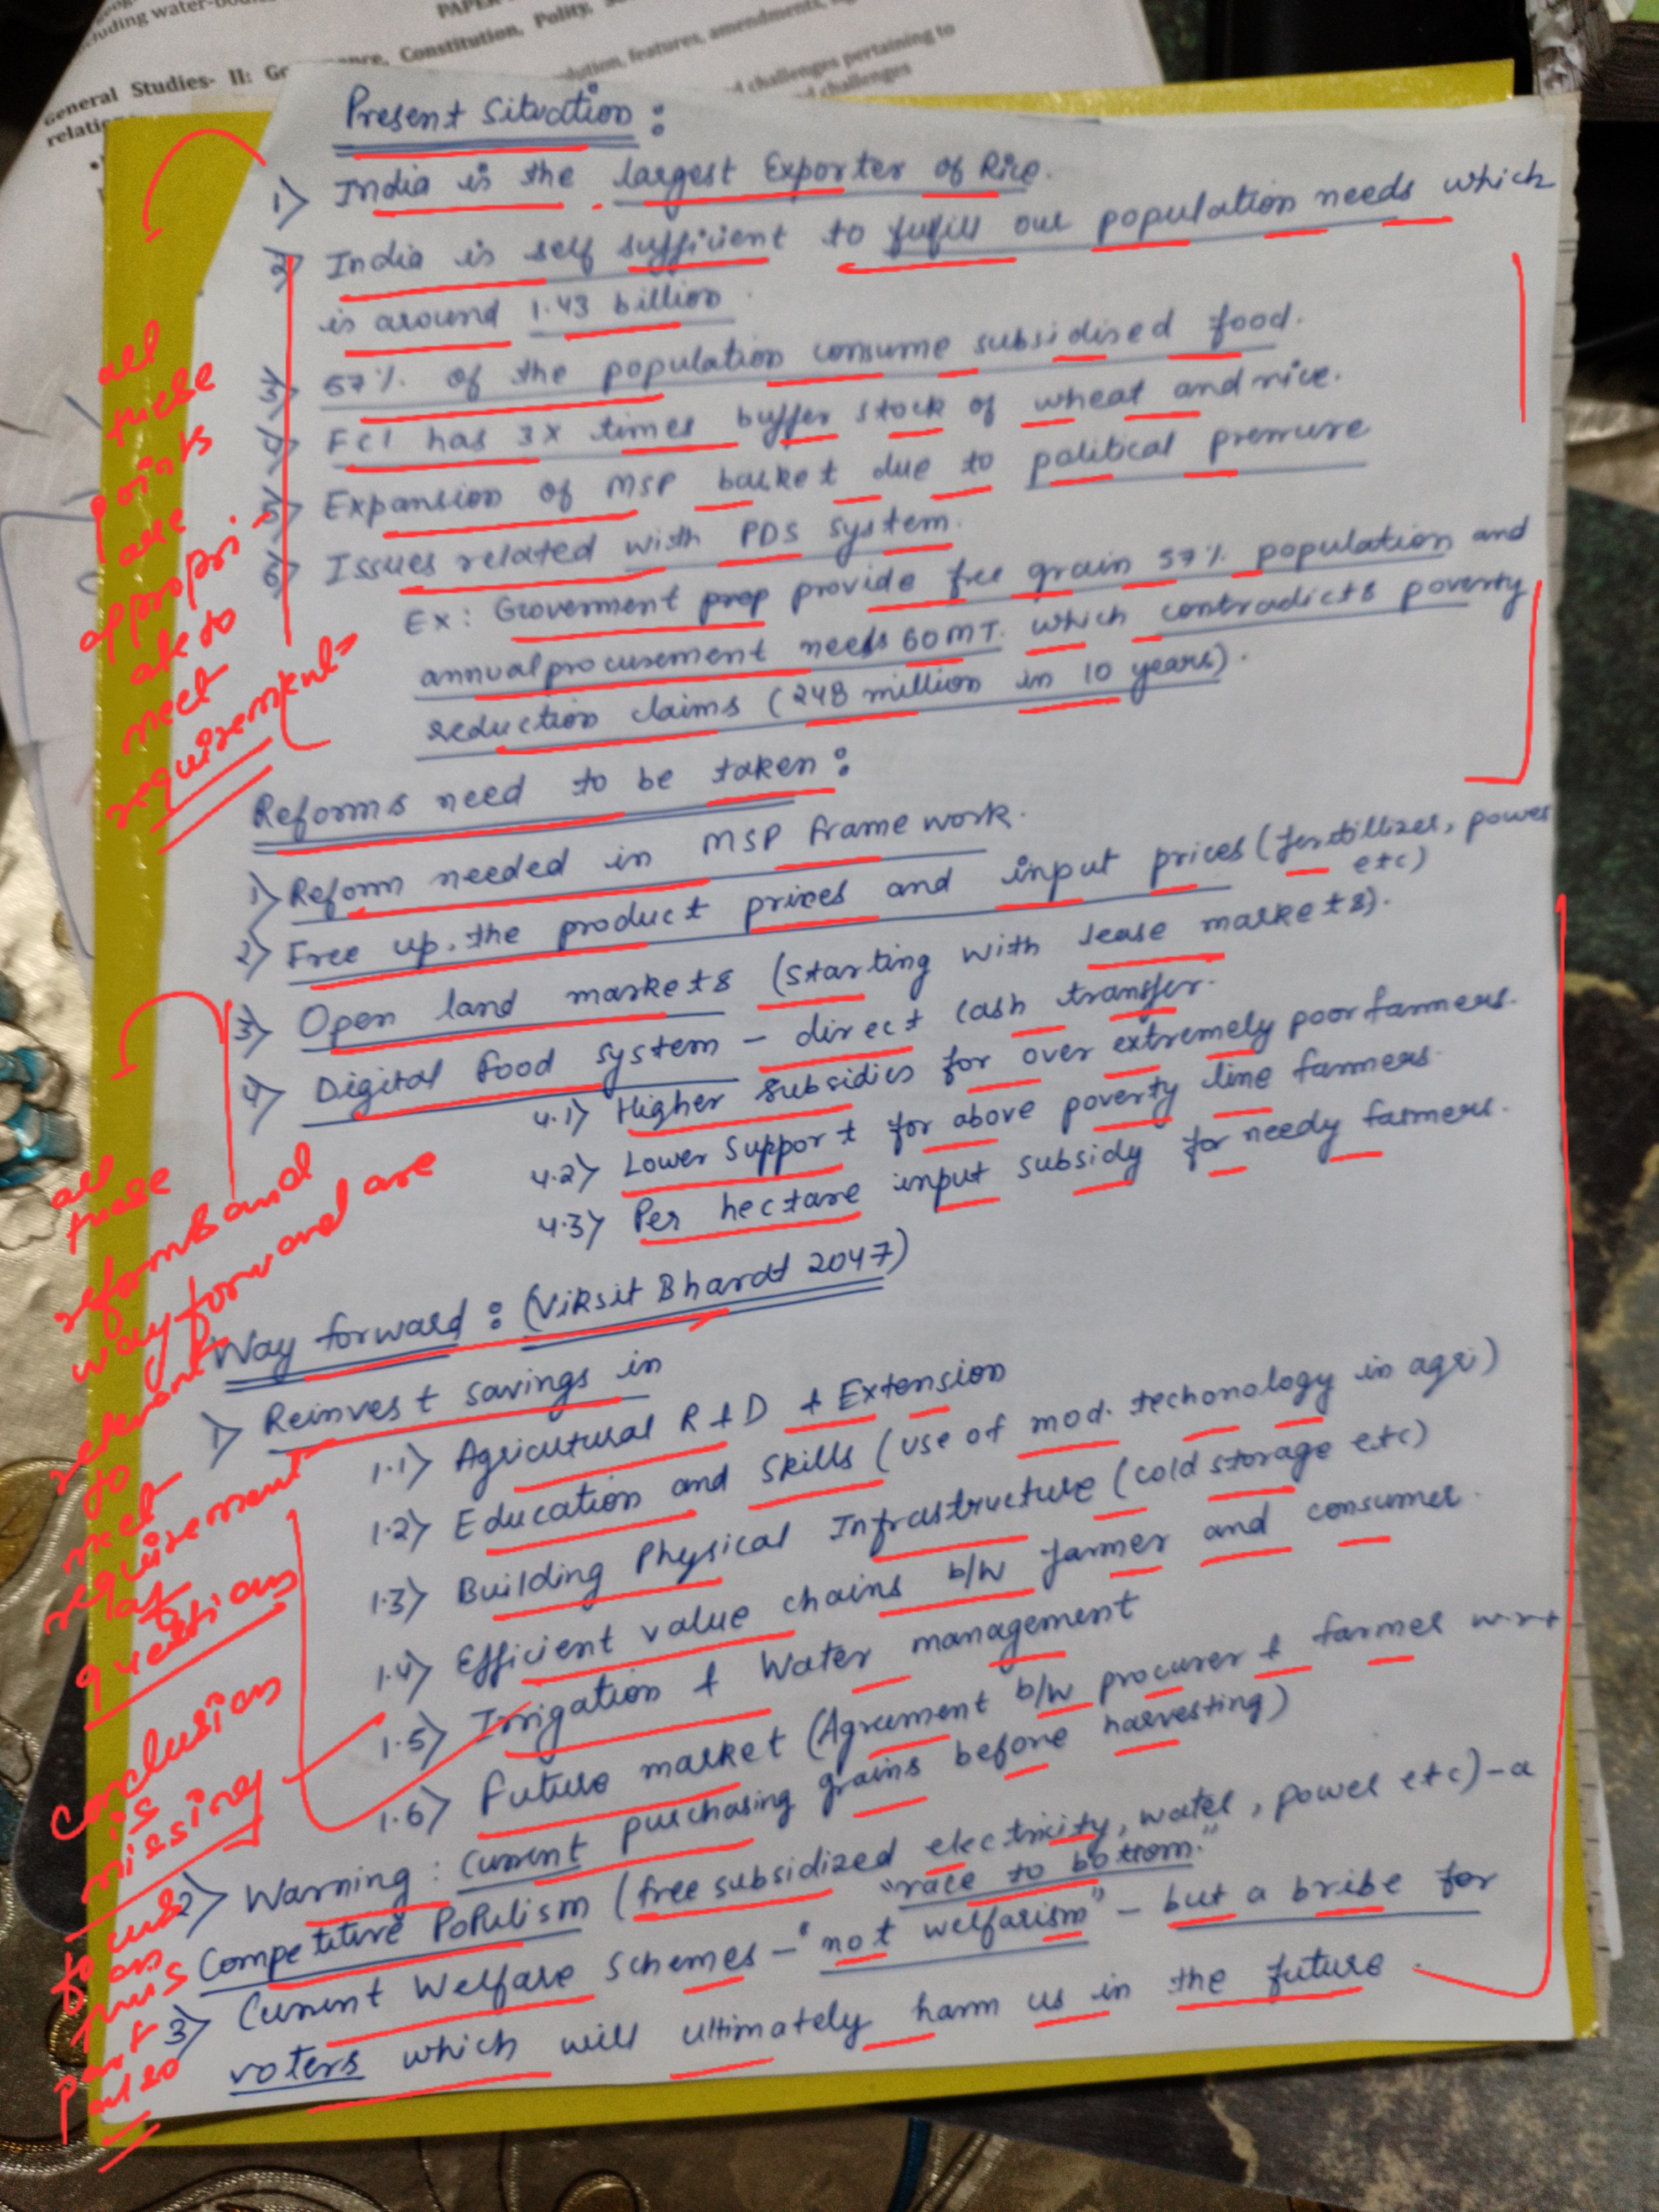 PAPER
cluding water-bodies
General Studies- II: Governance, Constitution, Polity,
relatio
olution, features, amendments,
d challenges pertaining to
d challenges
Present Situation :
1) India is the largest Exporter of Rice.
2) India is self sufficient to fulfill our population needs which
is around 1.43 billion.
3) 57% of the population consume subsidised food.
4) FCI has 3X times buffer stock of wheat and rice.
5) Expansion of MSP basket due to political pressure
6) Issues related with PDS system.
Ex: Government prop provide free grain 57% population and
annual procurement needs 60MT. which contradicts poverty
reduction claims (248 million in 10 years).
all
these
points
are
appropri-
ate to
meet
requirements
Reforms need to be taken :
1) Reform needed in MSP frame work.
2) Free up the product prices and input prices (fertillizer, power
etc)
3) Open land markets (starting with lease markets).
4) Digital food system - direct cash transfer.
4.1) Higher subsidies for over extremely poor farmers.
4.2) Lower Support for above poverty line farmers.
4.3) Per hectare input subsidy for needy farmers.
all
these
reforms and
way forward are
relevant
to
meet
requirement
of
questions
Way forward : (Viksit Bhardt 2047)
1) Reinvest savings in
1.1) Agricutural R & D & Extension
1.2) Education and Skills (use of mod. techonology in agri)
1.3) Building Physical Infrastructure (cold storage etc)
1.4) Efficient value chains b/w farmer and consumer.
1.5) Irrigation & Water management
1.6) Future market (Agreement b/w procurer & farmer w.r.t
purchasing grains before harvesting)
2) Warning : Current
Competitive Populism (free subsidized electricity, water, power etc) - a
"race to bottom."
3) Current Welfare schemes - "not welfarism" - but a bribe for
voters which will ultimately harm us in the future.
Conclusion
is
missing
focus
on
this
part
also